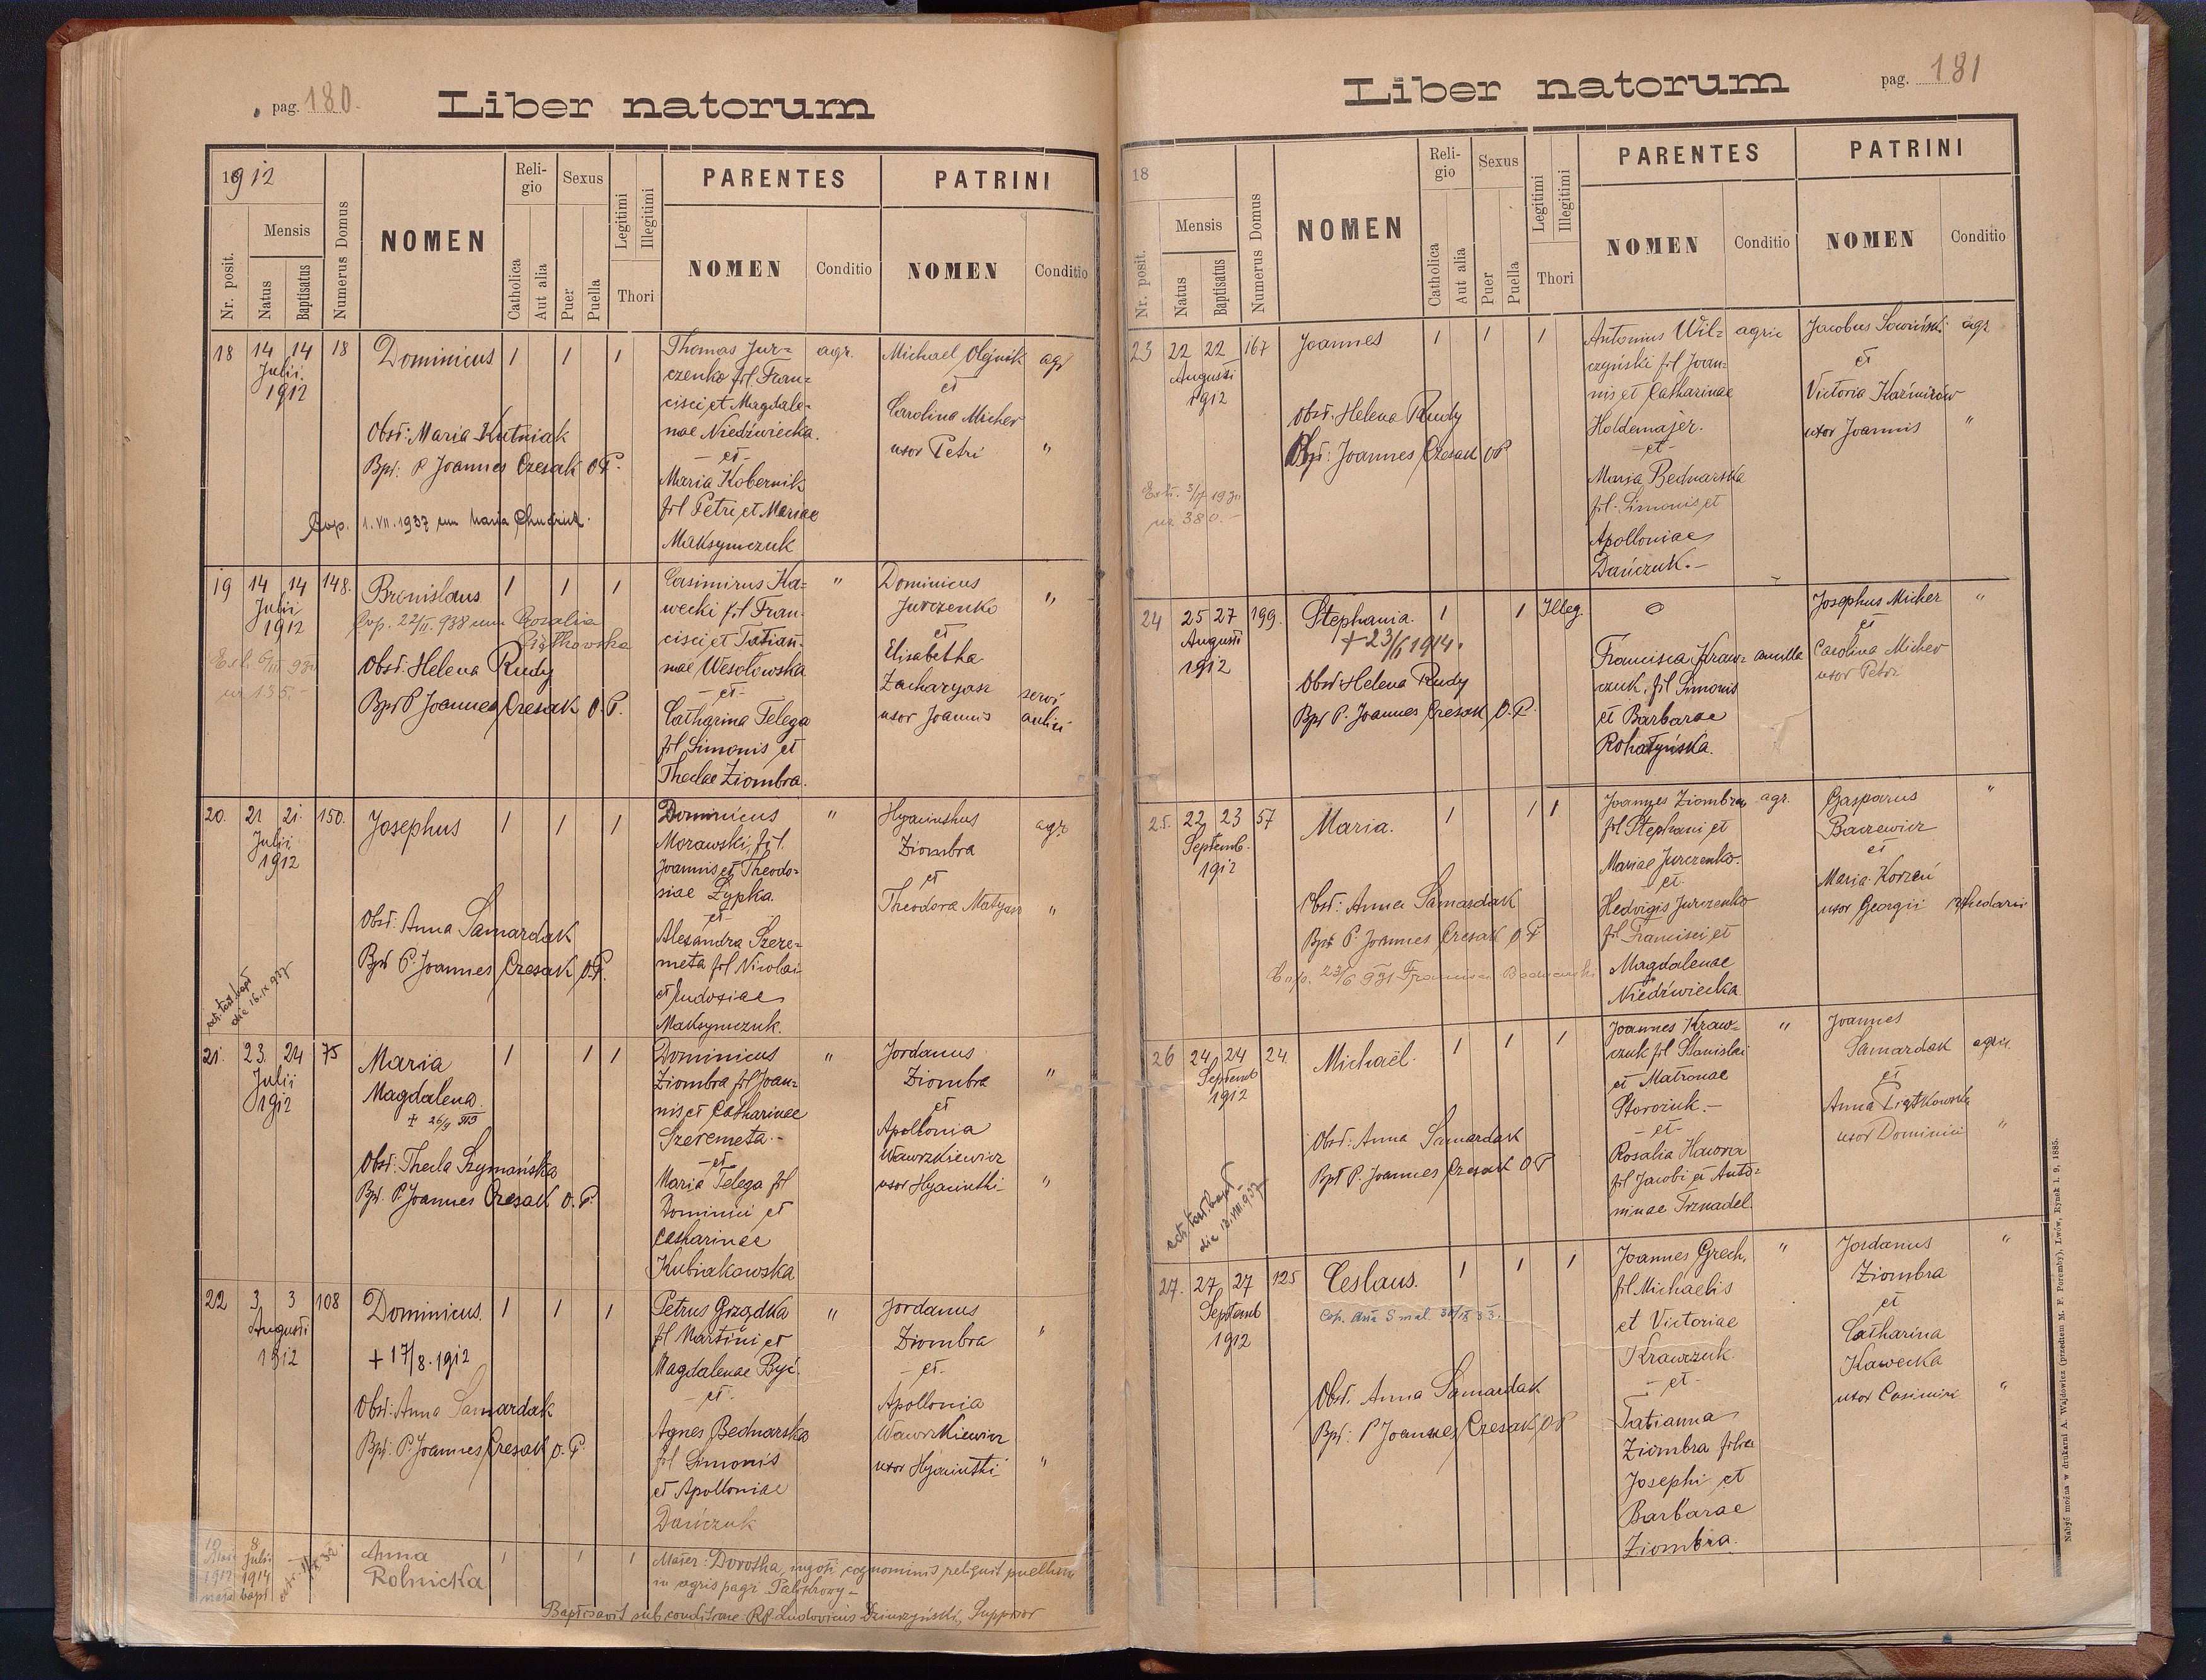 pag. 180.
Liber natorum
1912
Nr. posit.
Mensis
Natus
Baptisatus
Numerus Domus
NOMEN
Religio
Catholica
Aut alia
Sexus
Puer
Puella
Legitimi
Illegitimi
Thori
PARENTES
NOMEN
Conditio
PATRINI
NOMEN
Conditio
18 14 14 18 Dominicus 1 1 1
Julii
1912
Obst: Maria Kutniak
Bpt: P Joannes Czesak O.P.
Cop. 1.VII.1937 cum Maria
Thomas Jur=
czenko fil Fran=
cisci et Magdale-
nae Niedźwiecka.
-et-
Maria Kobernik
fil Petri et Mariae
Maksymczuk
agr.
Michael Olejnik agr
et
Carolina Micher
uxor Petri "
19 14 14 148. Bronislaus 1 1 1
Julii
1912
Cop. 22/II.938 cum Rosalia
Piątkowska
Obst: Helena Rudy
Bpt P Joannes Czesak O.P.
Casimirus Ka=
wecki fil Fran=
cisci et Tatian-
nae Wesołowska
-et-
Catharina Telega
fil Simonis et
Theclae Ziombra.
"
Dominicus
Jurczenko "
et
Elisabetha
Zacharyasz servi
uxor Joannis aulici
20. 21 21. 150. Josephus 1 1 1
Julii
1912
Obst: Anna Samardak
Bpt P. Joannes Czesak O.P.
ext. test. bapt
die 16.IX 937
Dominicus
Morawski, fil.
Joannis et Theodo-
siae Zypka.
-et-
Alexandra Szere-
meta fil Nicolai
et Eudoxiae
Maksymczuk.
"
Hyacinthus agr
Ziombra
et
Theodora Matyasz "
21. 23. 24 75 Maria 1 1 1
Julii
1912
Magdalena.
Obst: Thecla Szymańska
Bpt. P. Joannes Czesak O.P.
Dominicus
Ziombra fil Joan=
nis et Catharinae
Szeremeta.-
-et-
Maria Telega fil
Dominici et
Catharinae
Kubiakowska
"
Jordanus
Ziombra "
et
Apollonia
Wawrzkiewicz
uxor Hyacinthi "
22 3 3 108 Dominicus. 1 1 1
Augusti
1912
+ 17/8.1912
Obst: Anna Samardak
Bpt: P. Joannes Czesak O.P.
Petrus Grządka
fil Martini et
Magdalenae Być.
-et-
Agnes Bednarska
fil Simonis
et Apolloniae
Dańczuk
"
Jordanus
Ziombra "
-et-
Apollonia
Wawrzkiewicz
uxor Hyacinthi "
8
Julii
1912 1914
nata bapt
Anna
Rolnicka
1 1 1
Mater: Dorothea, ingoti cognominis, reliquit puellam
in agris pagi Palikrowy -
Baptisavit sub conditione RP. Ludovicus Dziurzyński, Supprior
pag. 181
Liber natorum
18
Nr. posit.
Mensis
Natus
Baptisatus
Numerus Domus
NOMEN
Religio
Catholica
Aut alia
Sexus
Puer
Puella
Legitimi
Illegitimi
Thori
PARENTES
NOMEN
Conditio
PATRINI
NOMEN
Conditio
23 22 22 167 Joannes 1 1 1
Augusti
1912
Obst: Helena Rudy
Bpt: Joannes Czesak OP
nr 380.-
Antonius Wil=
czyński fil Joan-
nis et Catharinae
Holdemajer.
-et-
Maria Bednarska
fil. Simonis et
Apolloniae
Dańczuk.-
agric
Jacobus Sawiński agr
et
Victoria Kaźmirów
uxor Joannis "
24 25 27 199. Stephania. 1 1 Illeg.
Augusti
1912
+ 23/6 1914.
Obst Helena Rudy
Bpt P. Joannes Czesak O.P.
O
Francisca Kraw= ancilla
czuk, fil Simonis
et Barbarae
Rohatyńska.
Josephus Micher "
et
Carolina Micher
uxor Petri
25. 22 23 57 Maria. 1 1 1
Septemb.
1912
Obst: Anna Samardak
Bpt P. Joannes Czesak O.P
Cop. 23/6 931 Bednarski
Joannes Ziombra, agr.
fil Stephani et
Mariae Jurczenko.
-et-
Hedvigis Jurczenko
fil Francisci et
Magdalenae
Niedźwiecka.
Gasparus "
Baczewicz
et
Maria Korzeń
uxor Georgii
26 24 24 24. Michaël. 1 1 1
Septemb
1912
Obst: Anna Samardak
Bpt P. Joannes Czesak OP
ext. test. bapt
die 12.VIII.937
Joannes Kraw=
czuk fil Stanislai
et Matronae
Storożuk.-
-et-
Rosalia Hawora
fil Jacobi et Anto=
ninae Trznadel.
"
Joannes
Samardak agric.
et
Anna Piątkowska
uxor Dominici "
27. 27 27 125 Ceslaus. 1 1 1
Septemb
1912
Obst. Anna Samardak
Bpt: P Joannes Czesak OP
Joannes Grech,
fil Michaelis
et Victoriae
Krawczuk.
-et-
Tatianna
Ziombra filia
Josephi et
Barbarae
Ziombra.
"
Jordanus "
Ziombra
et
Catharina
Kawecka
uxor Casimiri "
Nabyć można w drukarni A. Wajdowicz (przedtem M. F. Poremby), Lwów, Rynek l. 9, 1885.